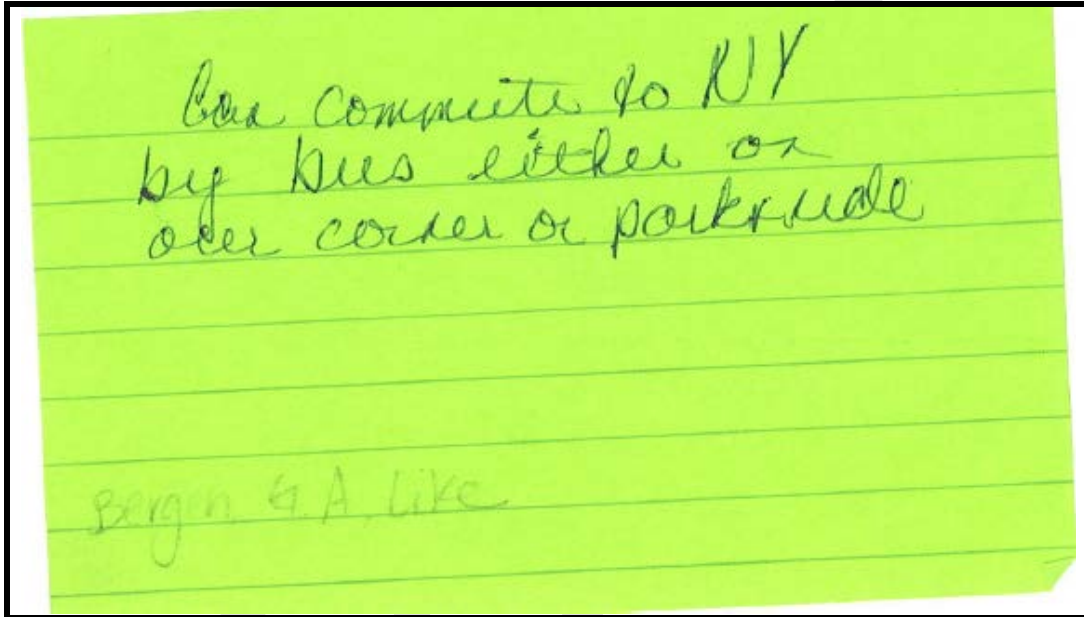 Can commute to NY
by bus either on
over corner or park+ride
Bergen G.A. Like